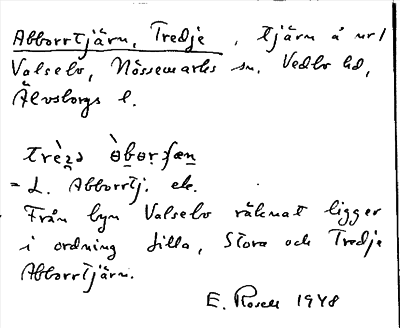 Abborrtjärn, Tredje, tjärn å nr 1
Valsebo, Nössemarks sn. Vedbo hd,
Älvsborgs l.
= L. Abborrtj. etc.
Från byn Valsebo räknat ligger
i ordning Lilla, Stora och Tredje
Abborrtjärn.
E. Rosell 1948